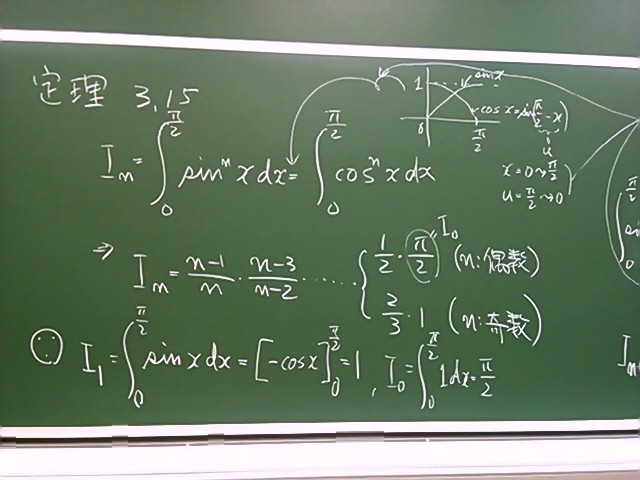 定理 3.15
I_n = ∫_0^{π/2} sin^n x dx = ∫_0^{π/2} cos^n x dx
1 sin x
cos x = sin(π/2 - x)
0 π/2 u
x = 0 → π/2
u = π/2 → 0
⇒ I_n = (n-1)/n · (n-3)/(n-2) ······ { 1/2 · π/2 (n:偶数) I_0
2/3 · 1 (n:奇数)
∵ I_1 = ∫_0^{π/2} sin x dx = [-cos x]_0^{π/2} = 1, I_0 = ∫_0^{π/2} 1dx = π/2